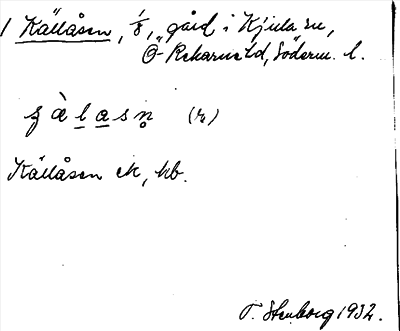 1 Källåsen, 1/8, gård i Kjula sn,
Ö-Rekarne hd, Söderm. l.
Källåsen ek, kb.
T. Stenborg 1932.